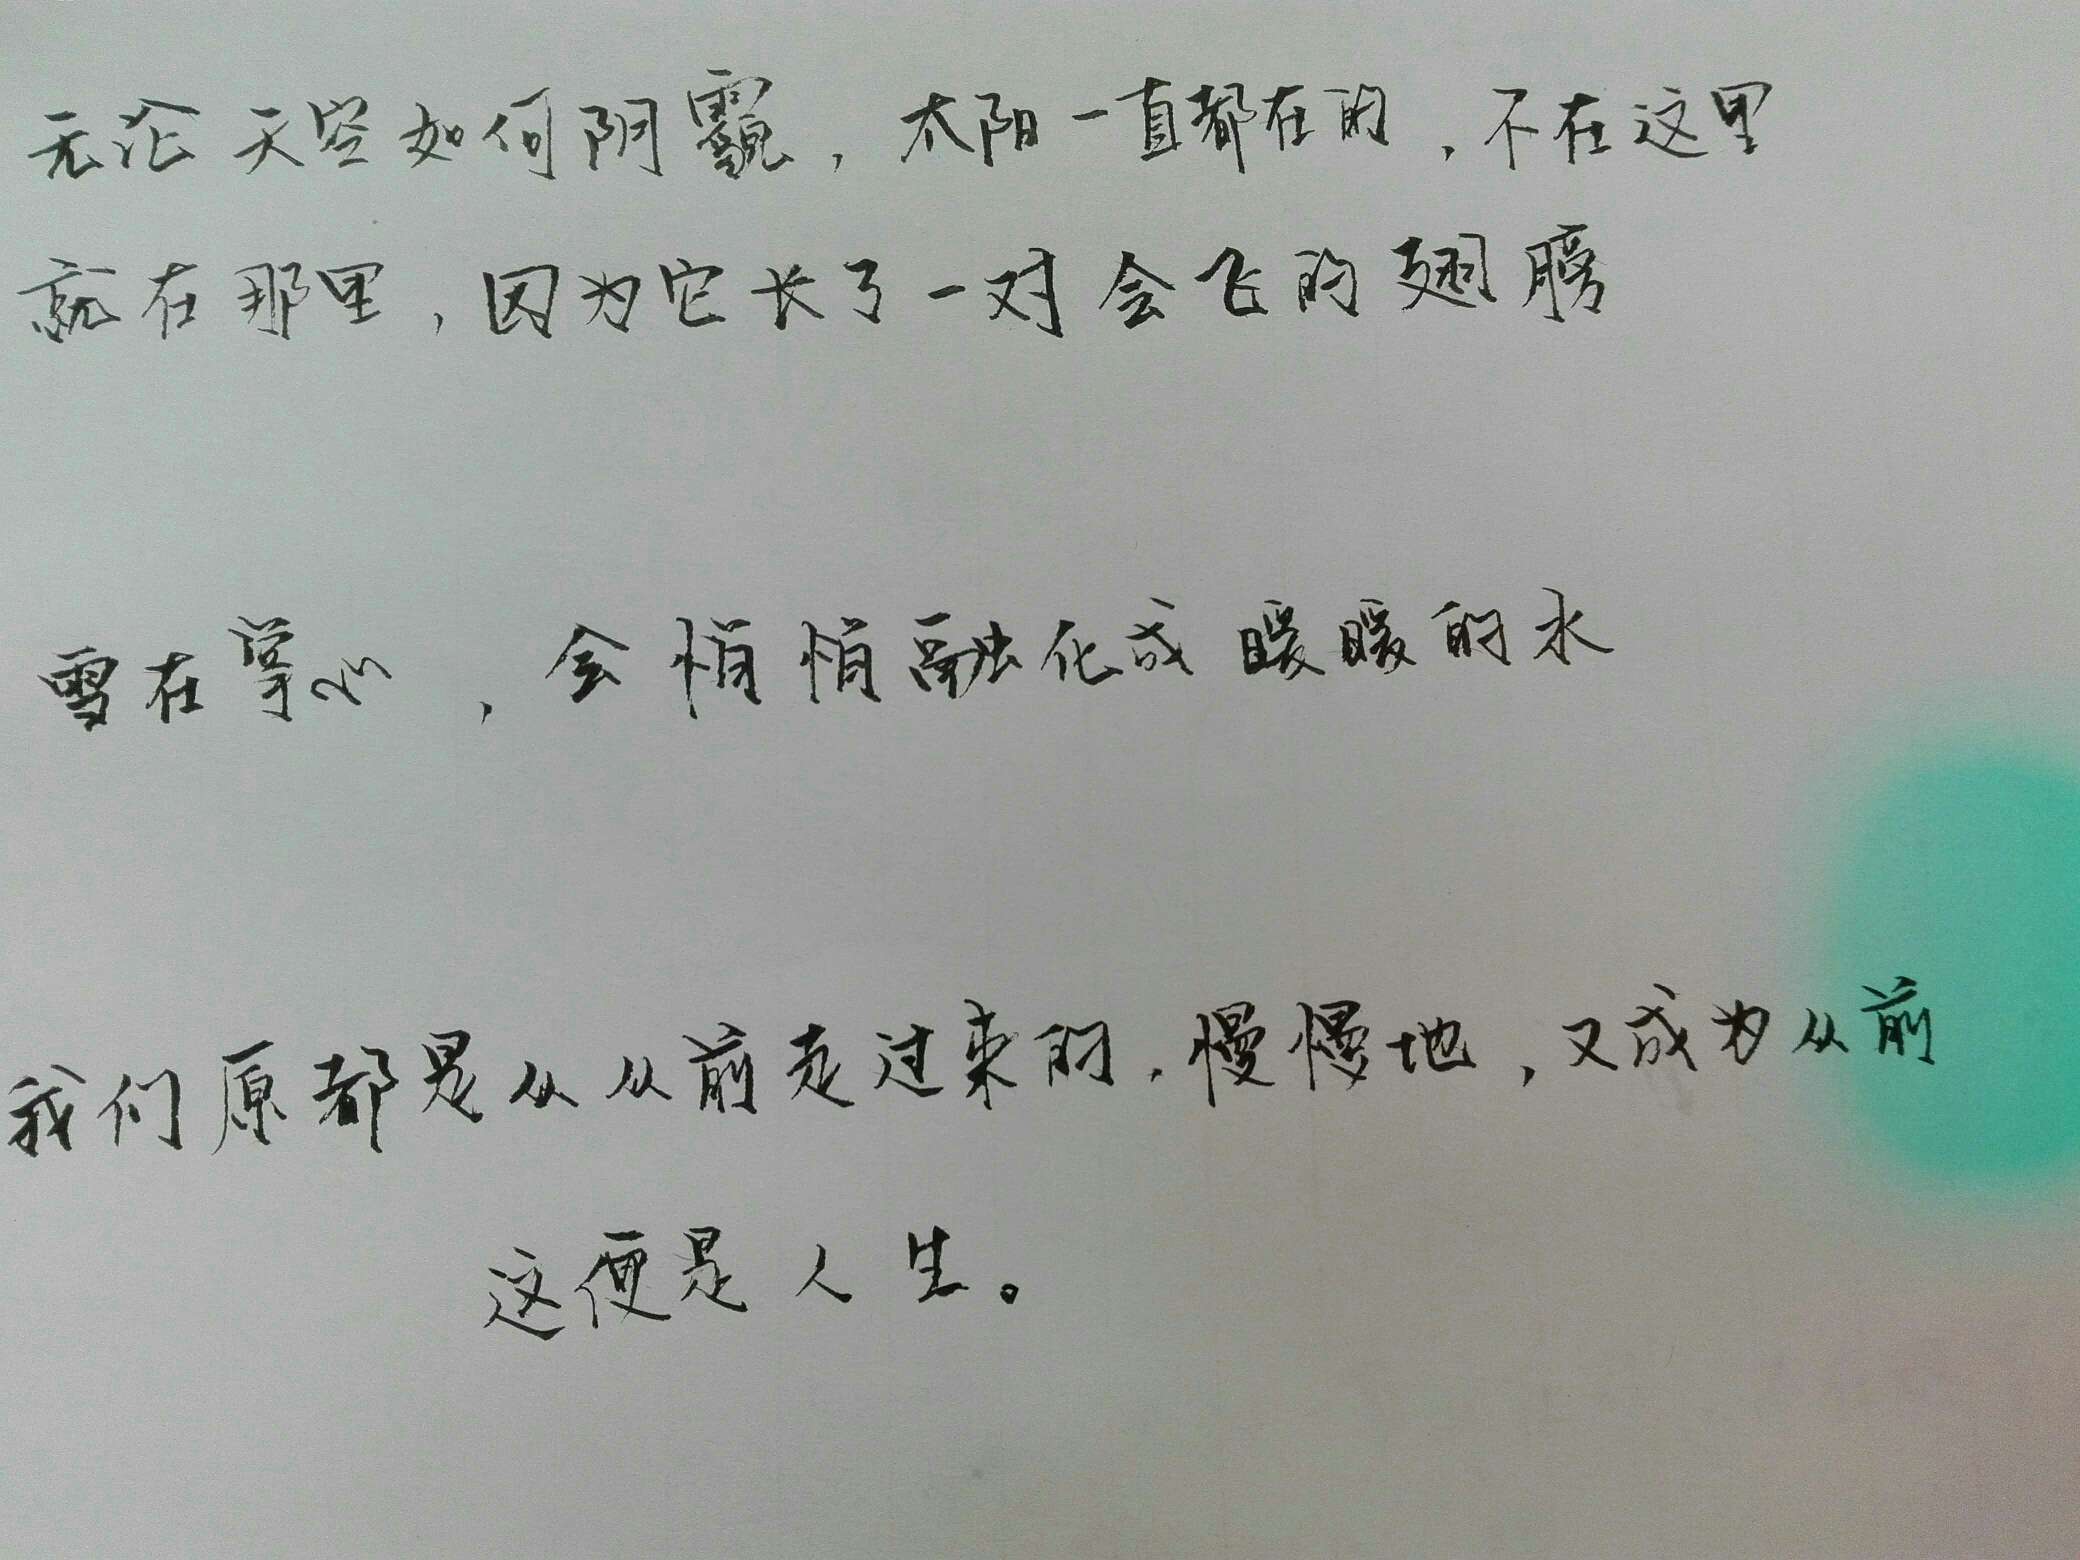 无论天空如何阴霾，太阳一直都在的，不在这里
就在那里，因为它长了一对会飞的翅膀
雪在掌心，会悄悄融化成暖暖的水
我们原都是从从前走过来的，慢慢地，又成为从前
这便是人生。